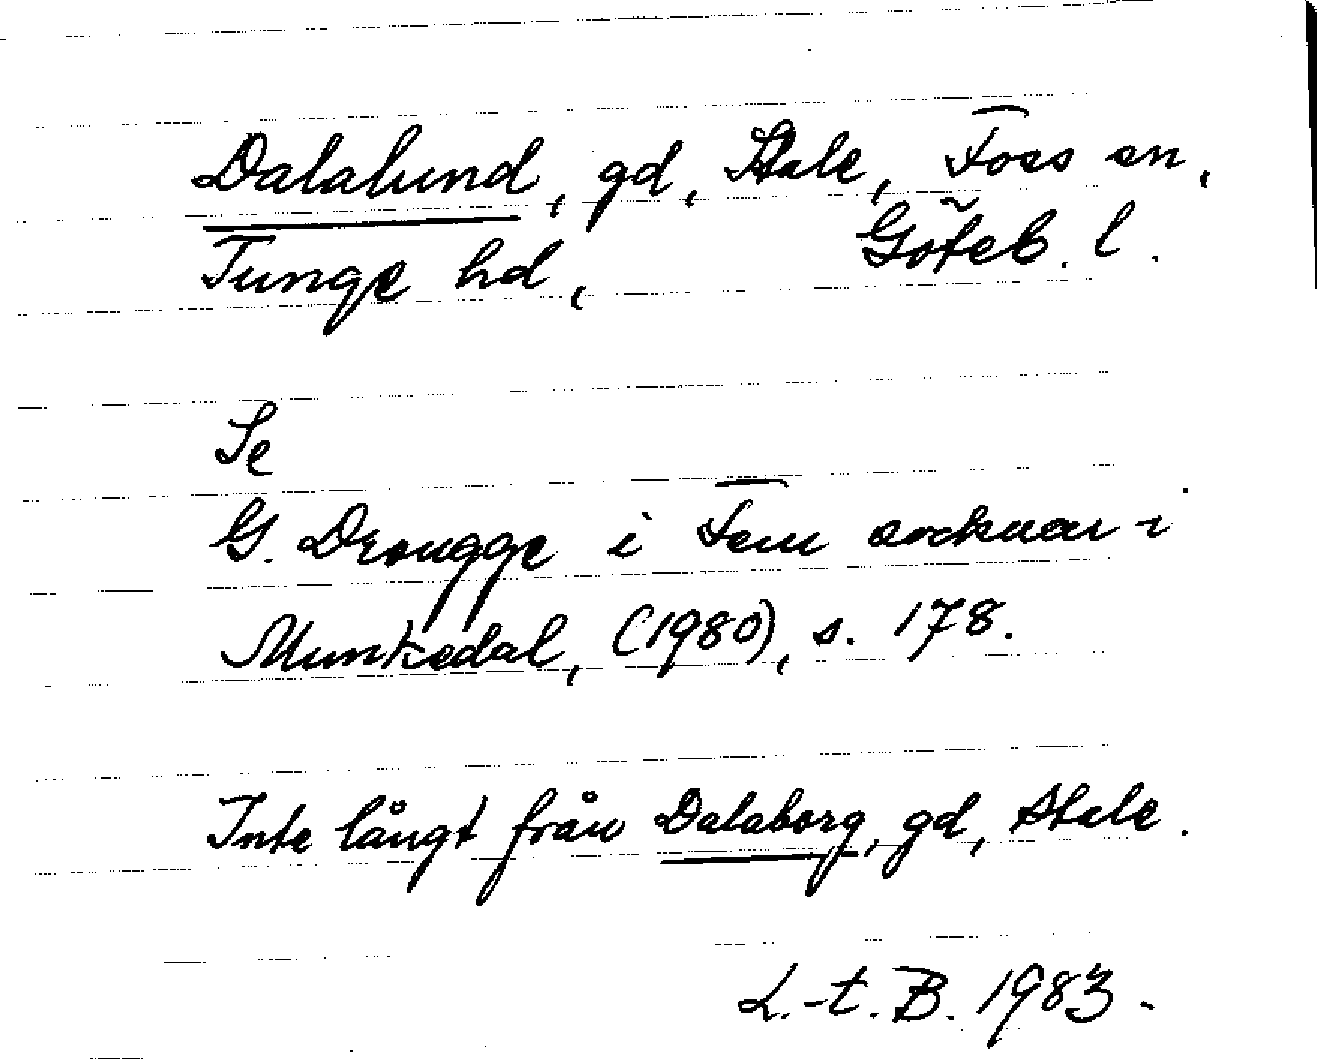 Dalalund, gd, Stale, Foss sn,
Tunge hd, Göteb. l.
Se
G. Drougge i Fem socknar i
Munkedal, (1980), s. 178.
Inte långt från Dalaborg, gd, Stale.
L.-t. B. 1983.